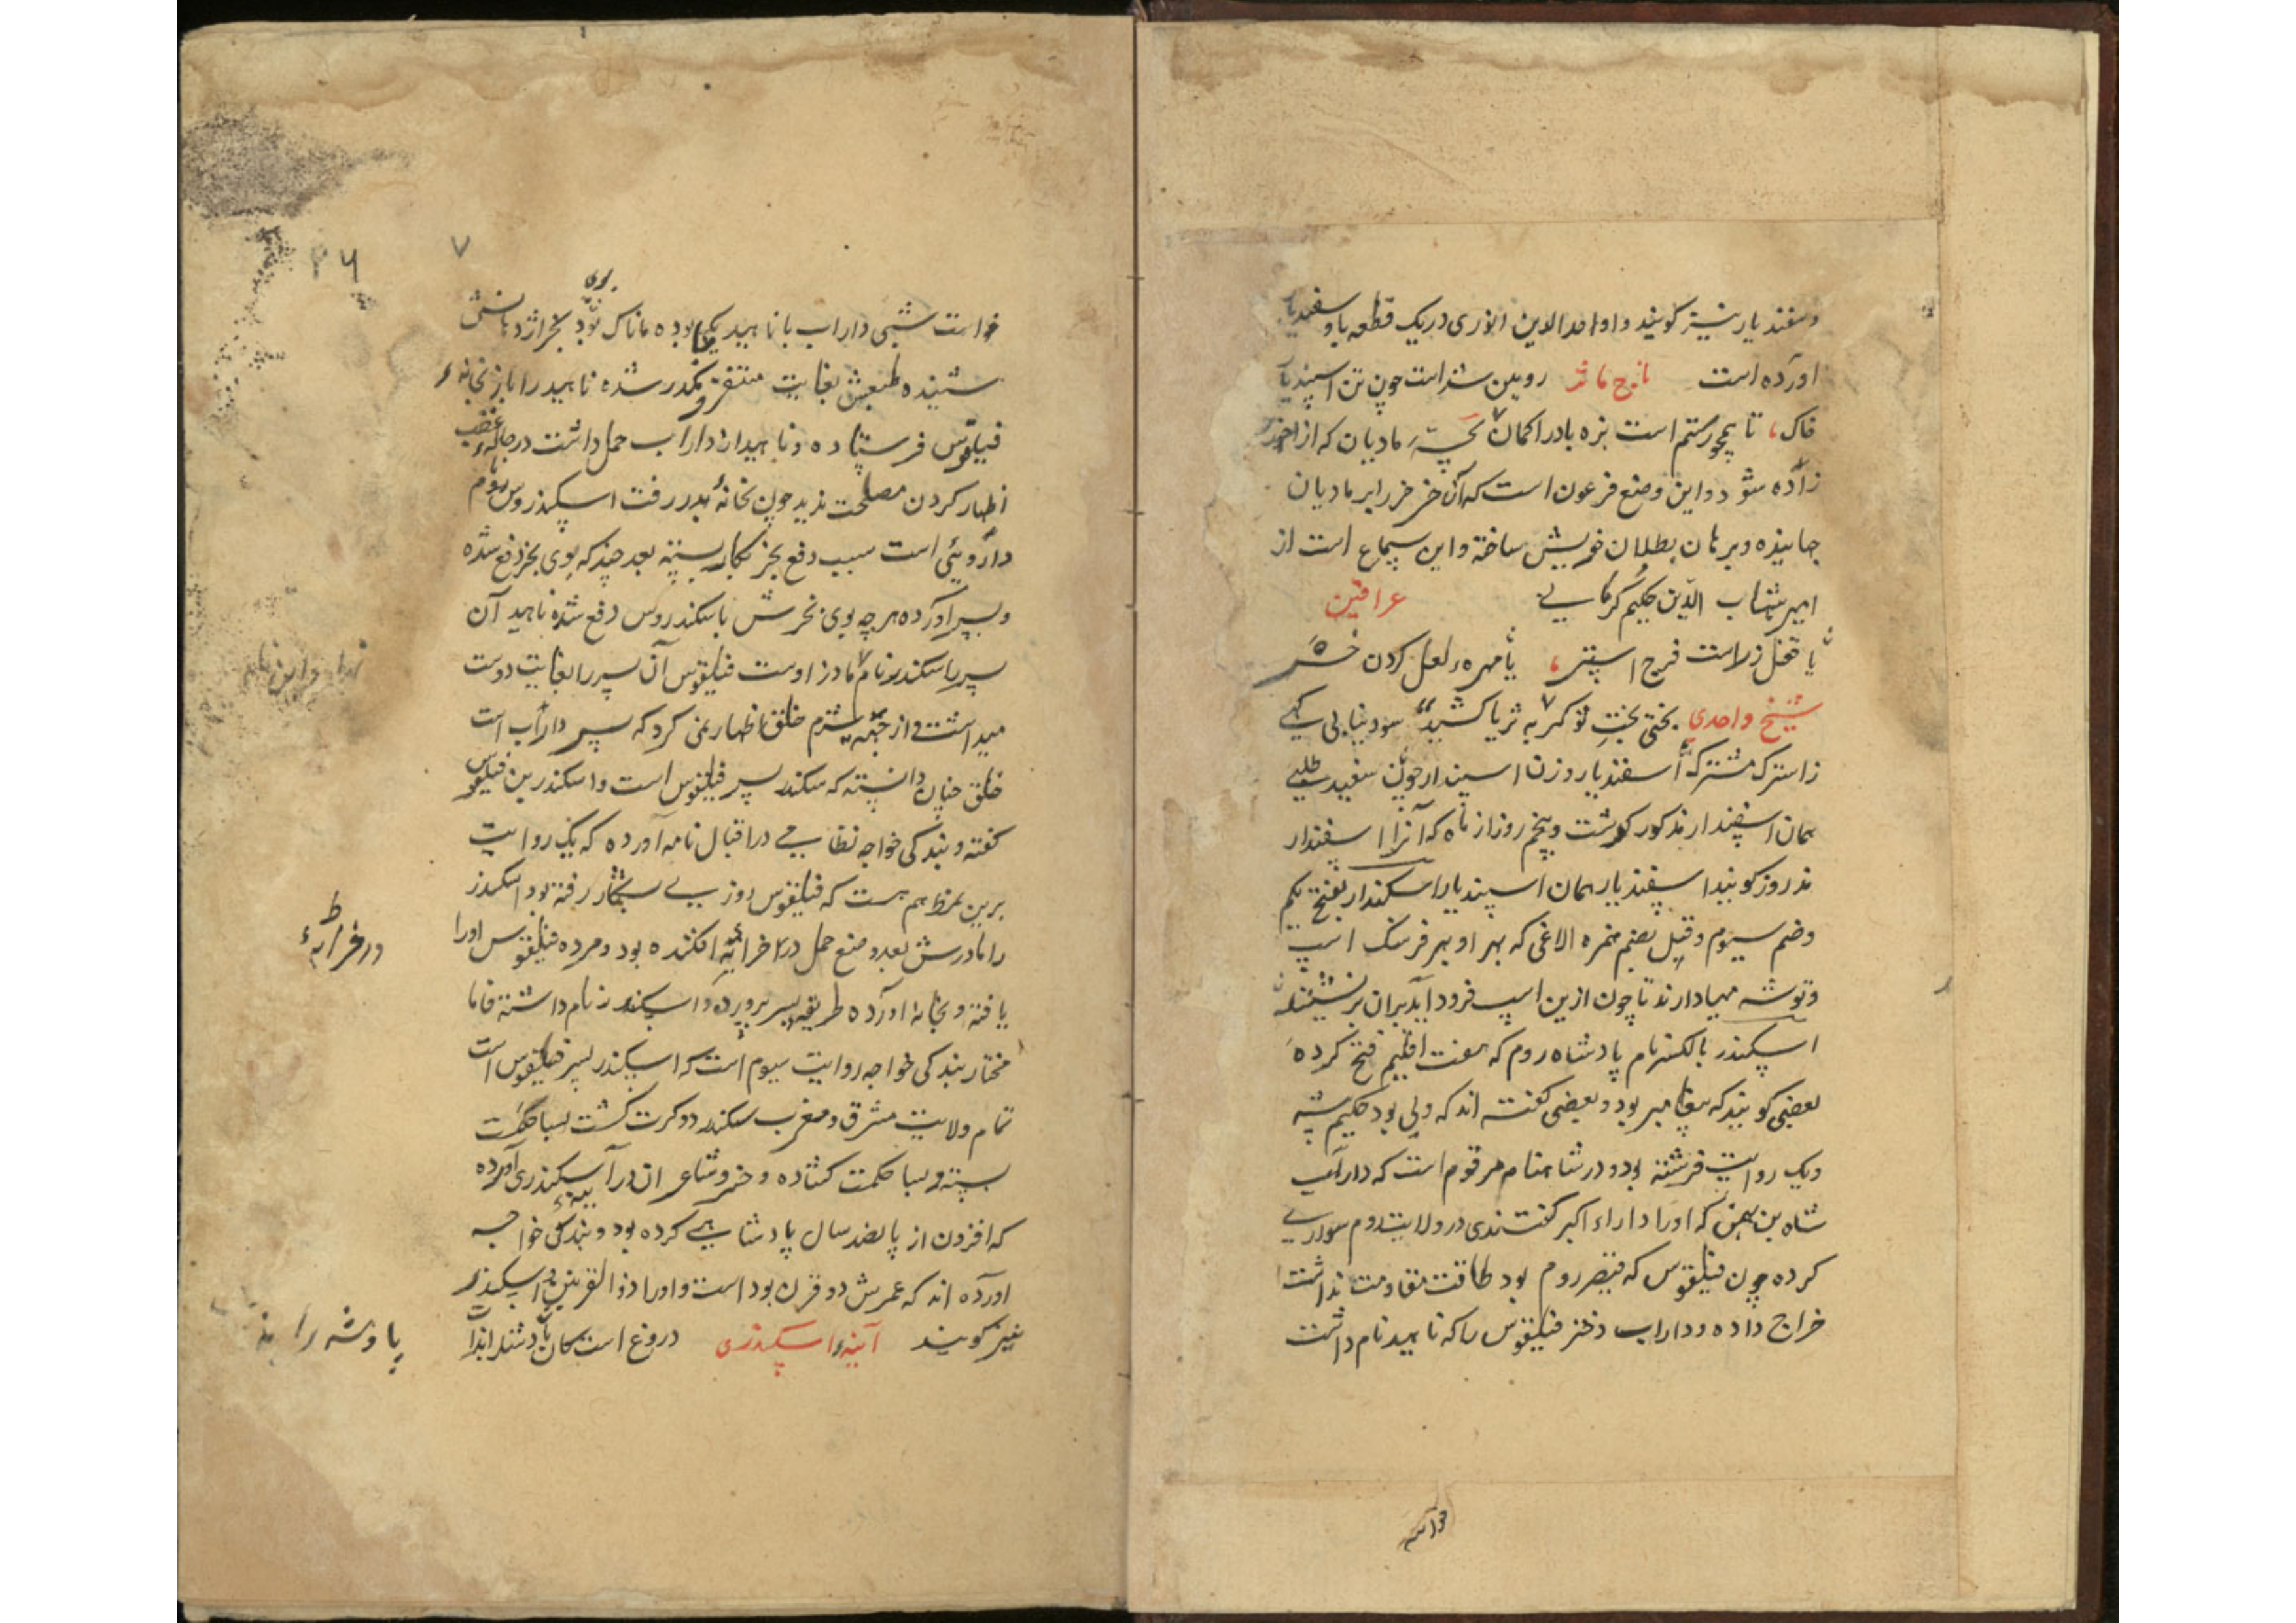 و سفندیار نیز گویند و اوحدالدین انوری در یک قطعه با و سفندیار
آورده است روین شد است چون تن اسپندیار
خاک تا همچو رستم است بزه باد را کمان بچۀ مادیان که از
زاده شود و این وضع فرعون است که آن خر خر را بر مادیان
جهانیده و برهان بطلان خویش ساخته و این سماع است از
امیر شهاب الدین حکیم کرمانی عراقین
یا قفل زر است فرج استر یا مهره لعل کردن خر
شیخ واحدی بختی بخت تو کمر به ثریا کشید سود نیابی کهی
اسفندیار و زن
همان اسفندار مذکور گوشت و پنجم روز از ماه که آنرا اسفندار
مذ روز گویند اسفندیار همان اسپندیار اسکندار بفتح یکم
و ضم سیوم و قیل بضم همزه الاغی که بهر او بهر فرسنگ اسپ
و توشه مهیا دارند تا چون ازین اسپ فرود آید بر آن بر نشیند
اسکندر بالکسر نام پادشاه روم که هفت اقلیم فتح کرده
بعضی گویند که پیغامبر بود و بعضی گفته اند که ولی بود حکیم
و یک روایت فرشته بود و در شاهنامه مرقوم است که داراب
شاه بن بهمن که او را داراء اکبر گفتندی در ولایت روم سواری
کرده چون فیلقوس که قیصر روم بود طاقت مقاومت نداشت
خراج داده و داراب دختر فیلقوس را که ناهید نام داشت
خواست
۲۶
۷
خواست شبی داراب با ناهید یکجا بوده ماناک بوی بخر از دهانش
شنیده طبعش بغایت متنفر و مکدر شده ناهید را باز بخانۀ
فیلقوس فرستاده و ناهید از داراب حمل داشت در حالۀ غضب
اظهار کردن مصلحت ندید چون بخانۀ پدر رفت اسکندروس نام
داروئی است سبب دفع بخر بکار بسته بعد چند که بوی بخر دفع شده
و پسر آورده هر چه بوی بخرش با سکندروس دفع شده ناهید آن
پسر را سکندر نام مادر اوست فیلقوس آن پسر را بغایت دوست
میداشت و از جهة شرم خلق اظهار نمی کرد که پسر داراب است
خلق چنان دانسته که سکندر پسر فیلقوس است و اسکندر بن فیلقوس
گفته و بندگی خواجه نظامی در اقبال نامه آورده که یک روایت
برین نمط هم هست که فیلقوس روزی بشکار رفته بود اسکندر
را مادرش بعد وضع حمل در خرابۀ افکنده بود و مرده فیلقوس او را
یافته و بخانه آورده طریقه پسر پرورده و اسکندر نام داشته فاما
مختار بندگی خواجه روایت سیوم است که اسکندر پسر فیلقوس است
تمام ولایت مشرق و مغرب سکندر دو کرت گشت بسا حکمت
بسته و بسا حکمت کشاده و خسرو شاعران در آینۀ سکندری آورده
که افزون از پانصد سال پادشاهی کرده بود و بندگی خواجه
آورده اند که عمرش دو قرن بود است و او را ذوالقرنین و اسکندر
نیز گویند آینۀ اسکندری دروغ است کان
در خرابۀ
پادشه را